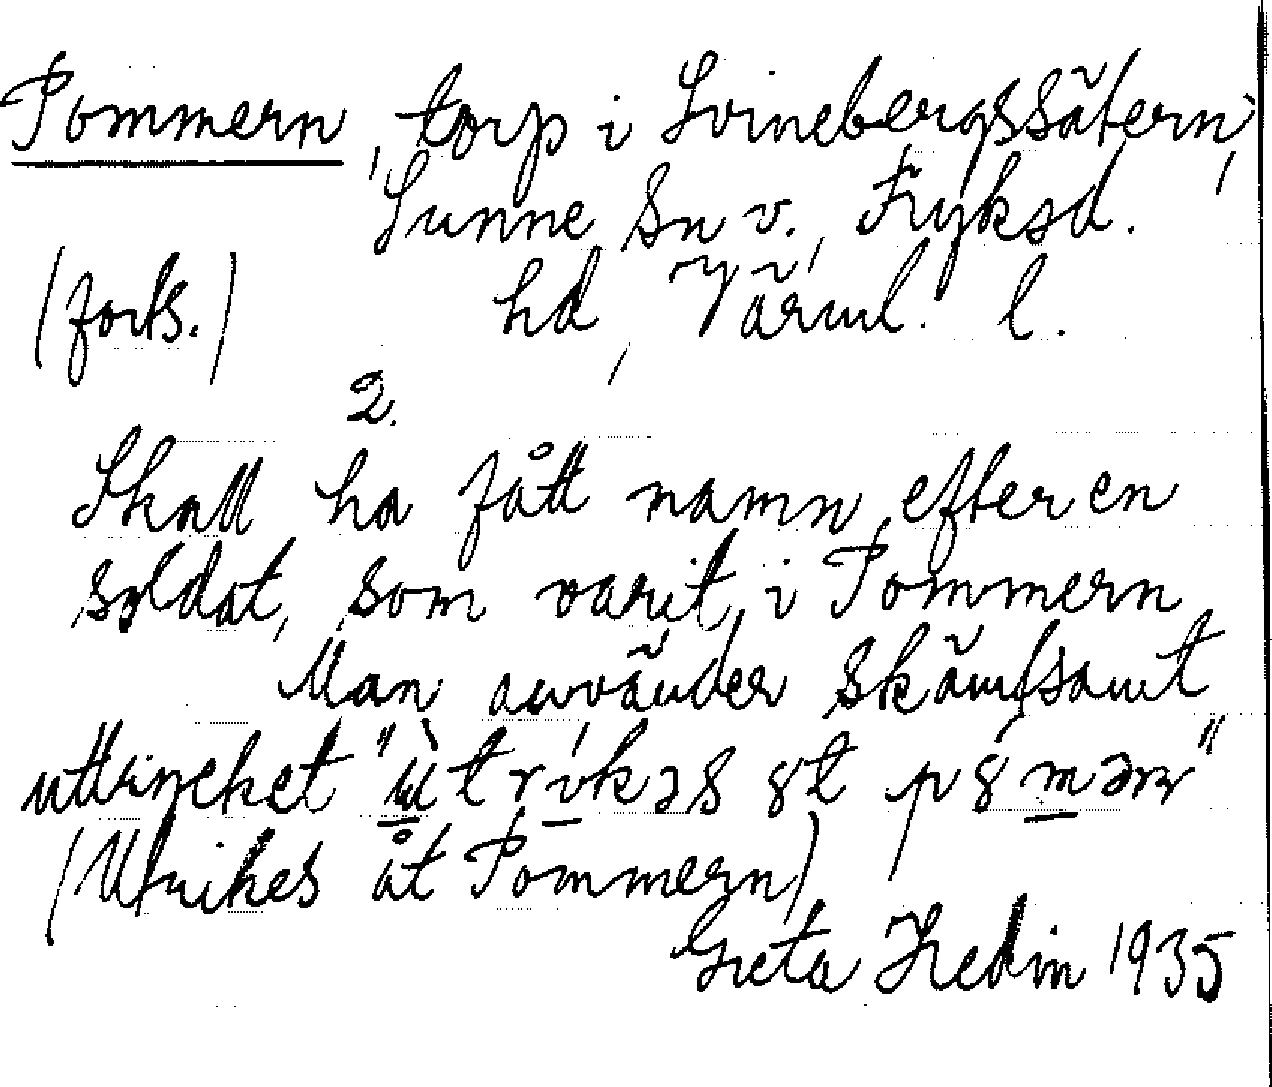 Pommern, torp i Svinebergssätern,
Sunne sn v., Fryksd.
(forts.) hd, Värml. l.
2.
Skall ha fått namn efter en
soldat, som varit i Pommern
Man använder skämtsamt
uttrycket "
(Utrikes åt Pommern)
Greta Hedin 1935